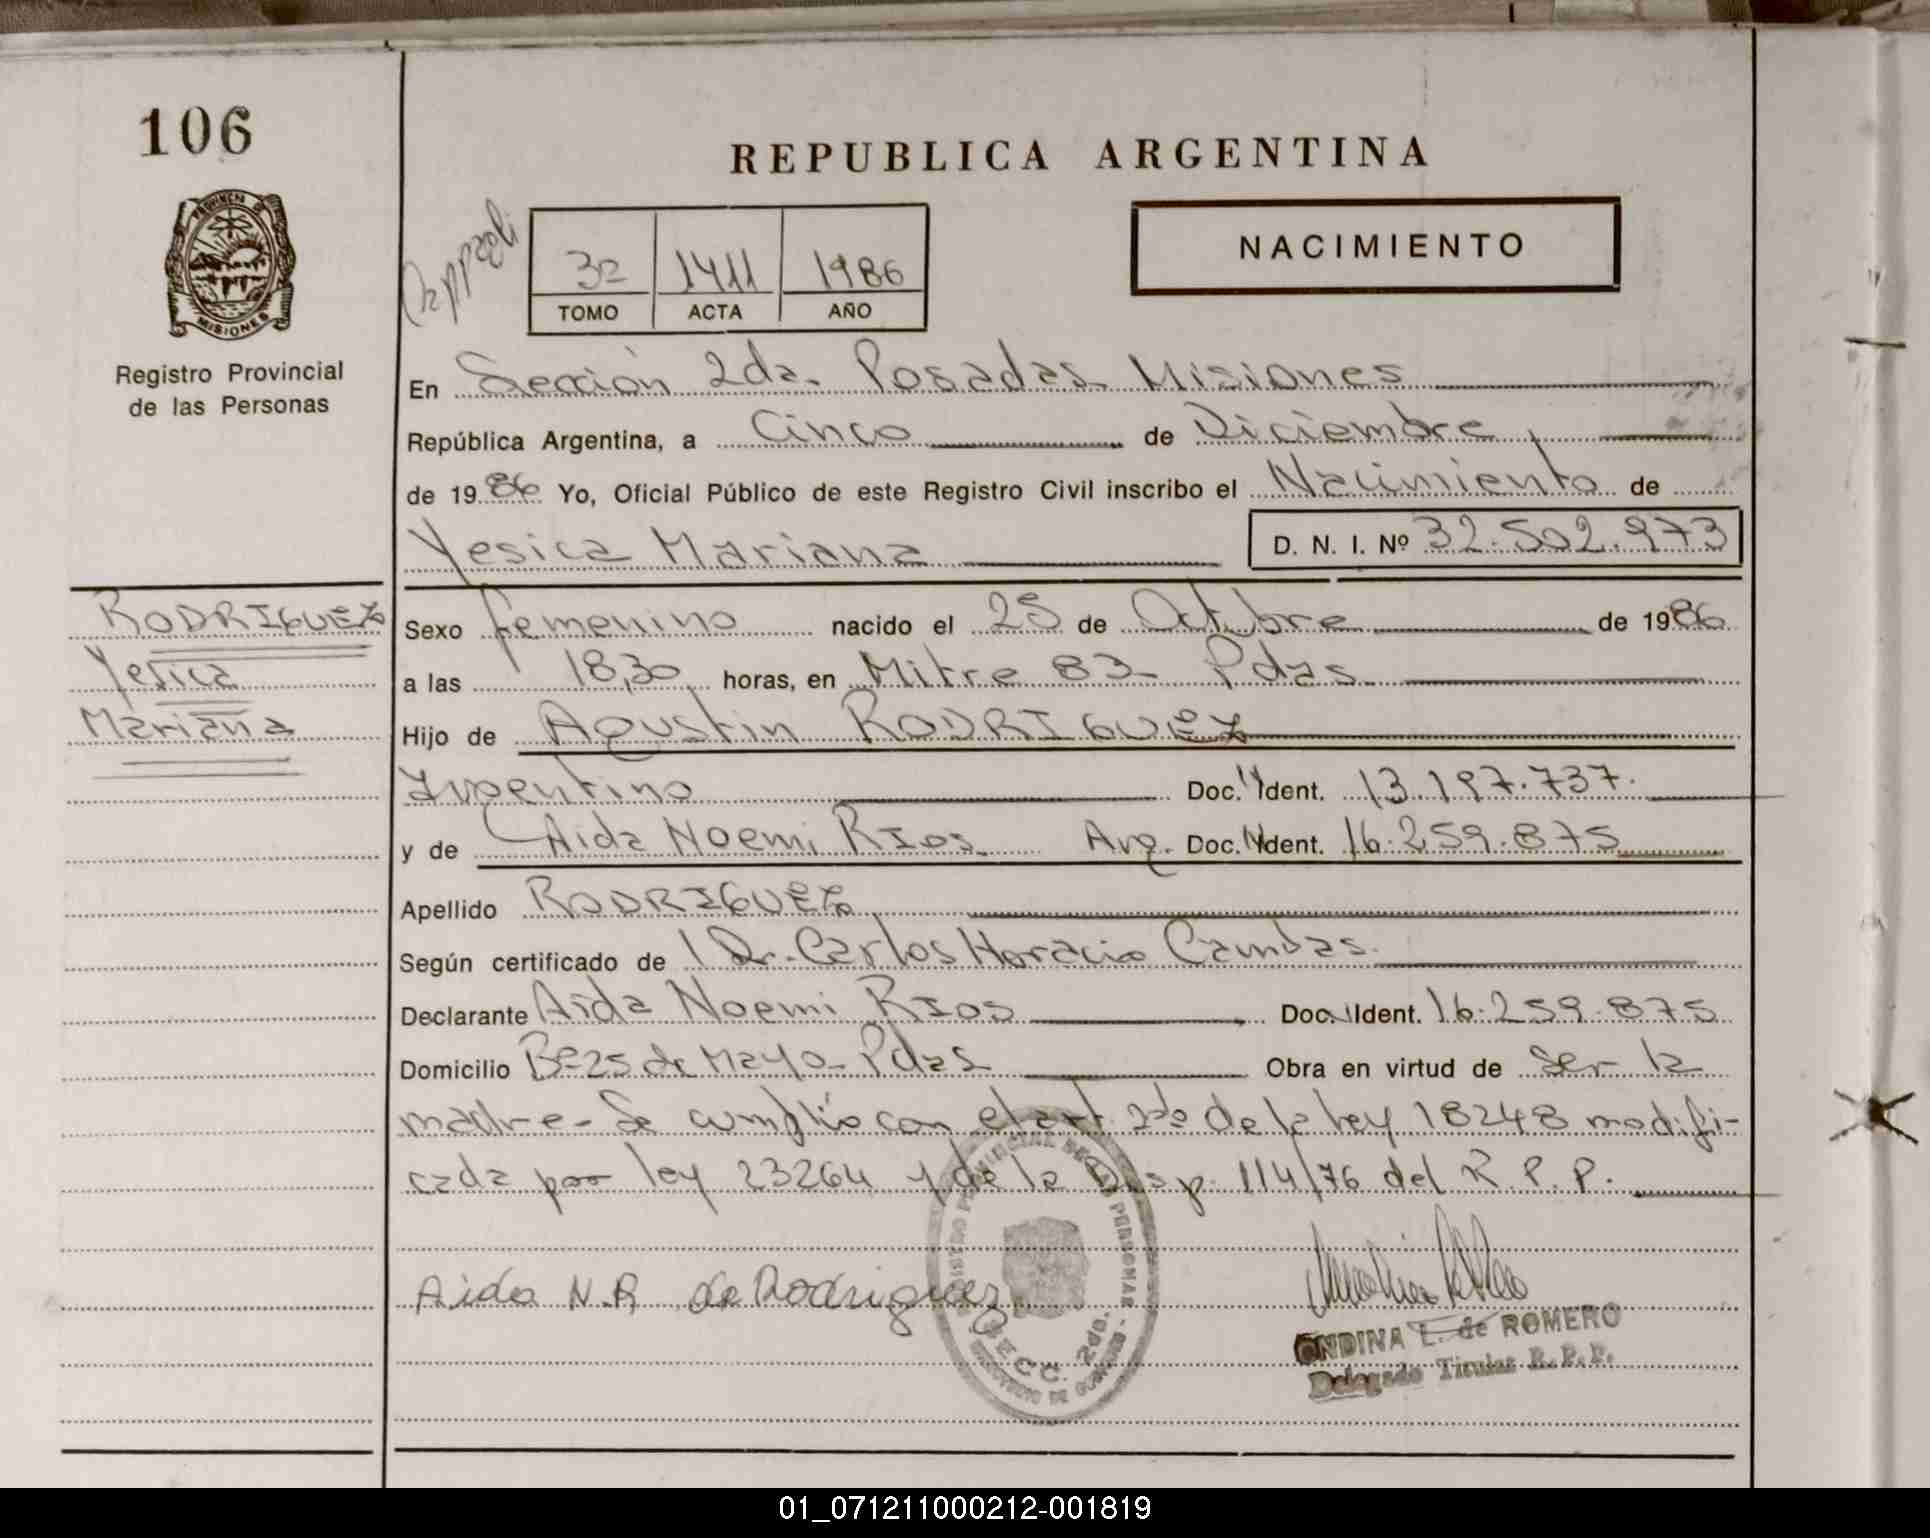 106
REPUBLICA ARGENTINA
PROVINCIA DE
MISIONES
Registro Provincial
de las Personas
3º 1411 1986
TOMO ACTA AÑO
NACIMIENTO
En Sección 2da. Posadas Misiones
República Argentina, a Cinco de Diciembre,
de 1986 Yo, Oficial Público de este Registro Civil inscribo el Nacimiento de
Yesica Mariana D. N. I. Nº 32.502.973
RODRIGUEZ
Yesica
Mariana
Sexo femenino nacido el 25 de Octubre de 1986
a las 18,30 horas, en Mitre 83- Pdas.
Hijo de Agustin RODRIGUEZ
Argentino Doc. Ident. 13.197.737.
y de Aida Noemi RIOS. Arg. Doc. Ident. 16.259.875
Apellido RODRIGUEZ,
Según certificado de l Dr. Carlos Horacio Cambas.
Declarante Aida Noemi RIOS Doc. Ident. 16.259.875
Domicilio Bº 25 de Mayo- Pdas Obra en virtud de ser la
madre- Se cumplio con el art. 2do de la ley 18248 modifi-
cada por ley 23264 y de la Disp. 114/76 del R. P. P.
Aida N.R de Rodriguez
SECC. 2da.
ONDINA L. de ROMERO
Delegado Titular R.P.P.
01_071211000212-001819